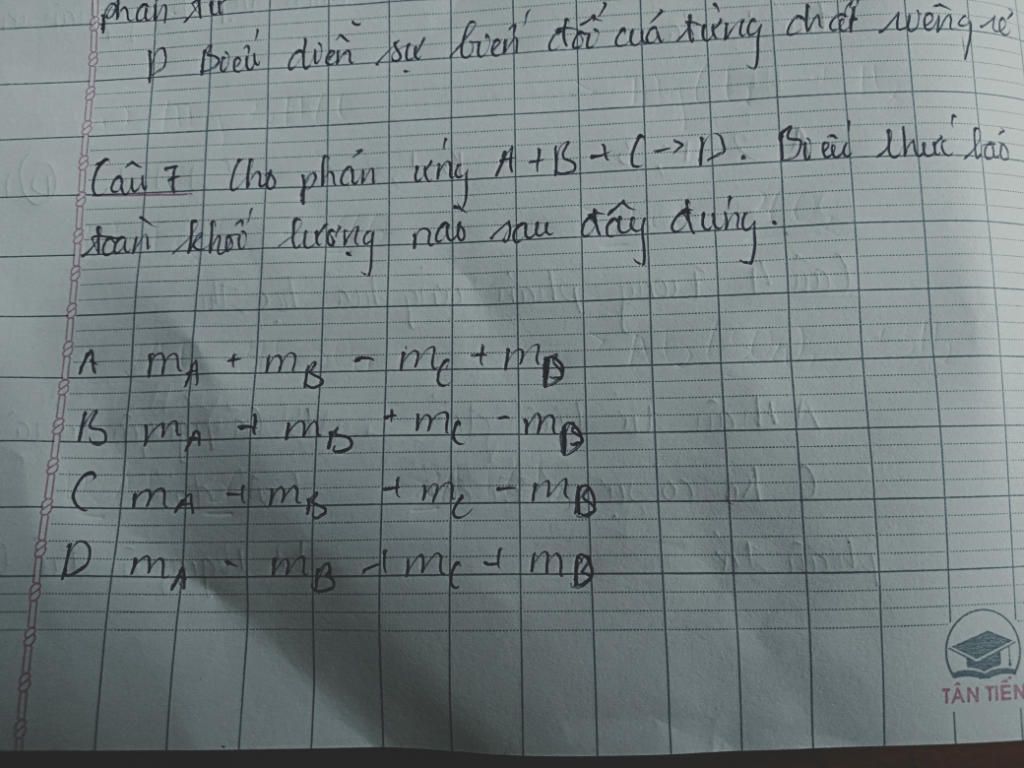 phân tử
D Biểu diễn sự biến đổi của từng chất riêng rẽ
Câu 7 Cho phản ứng A + B + C → D. Biểu thức bảo
toàn khối lượng nào sau đây đúng.
A m_A + m_B - m_C + m_D
B m_A + m_B + m_C - m_D
C m_A + m_B + m_C - m_D
D m_A - m_B + m_C + m_D
TÂN TIẾN